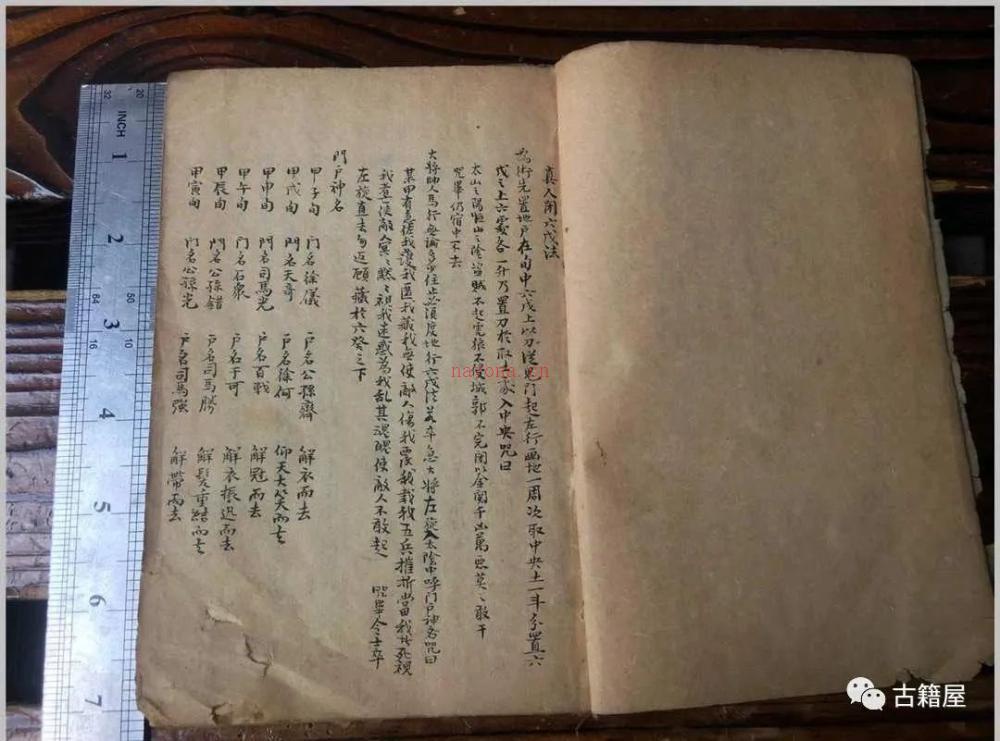 真人閉六戊法
為術先置地戶在旬中六戊上以刀從鬼門起左行畫地一周次取中央土一斗分置六
戊之上六處各一升乃置刀於取土處入中央咒曰
太山之陽恒山之陰盜賊不起虎狼不受城郭不完閉以金關千凶萬惡莫之敢干
咒畢仍宿中不去
大將助人馬行無論多少住止必須度地行六戊法若卒急大將左旋入太陰中呼門戶神名咒曰
某甲有急從我護我匿我藏我無使敵人傷我覆我載我五兵摧折當我者死視
我者 敵人冥冥默默視我迷惑為我亂其魂魄使敵人不敢起 咒畢令士卒
左旋直去勿返顧藏於六癸之下
門戶神名
甲子旬 门名徐儀 户名公孫齊 解衣而去
甲戌旬 門名天哥 户名徐何 仰天大笑而去
甲申旬 門名司馬光 户名百戰 解冠而去
甲午旬 门名石象 户名于可 解衣振迅而去
甲辰旬 門名公孫錯 户名司馬勝 解髮重結而去
甲寅旬 门名公孫光 户名司馬強 解帶而去
INCH
32 20
1
2
64 10
3
16
4
5
6
7
nayona.cn
古籍屋